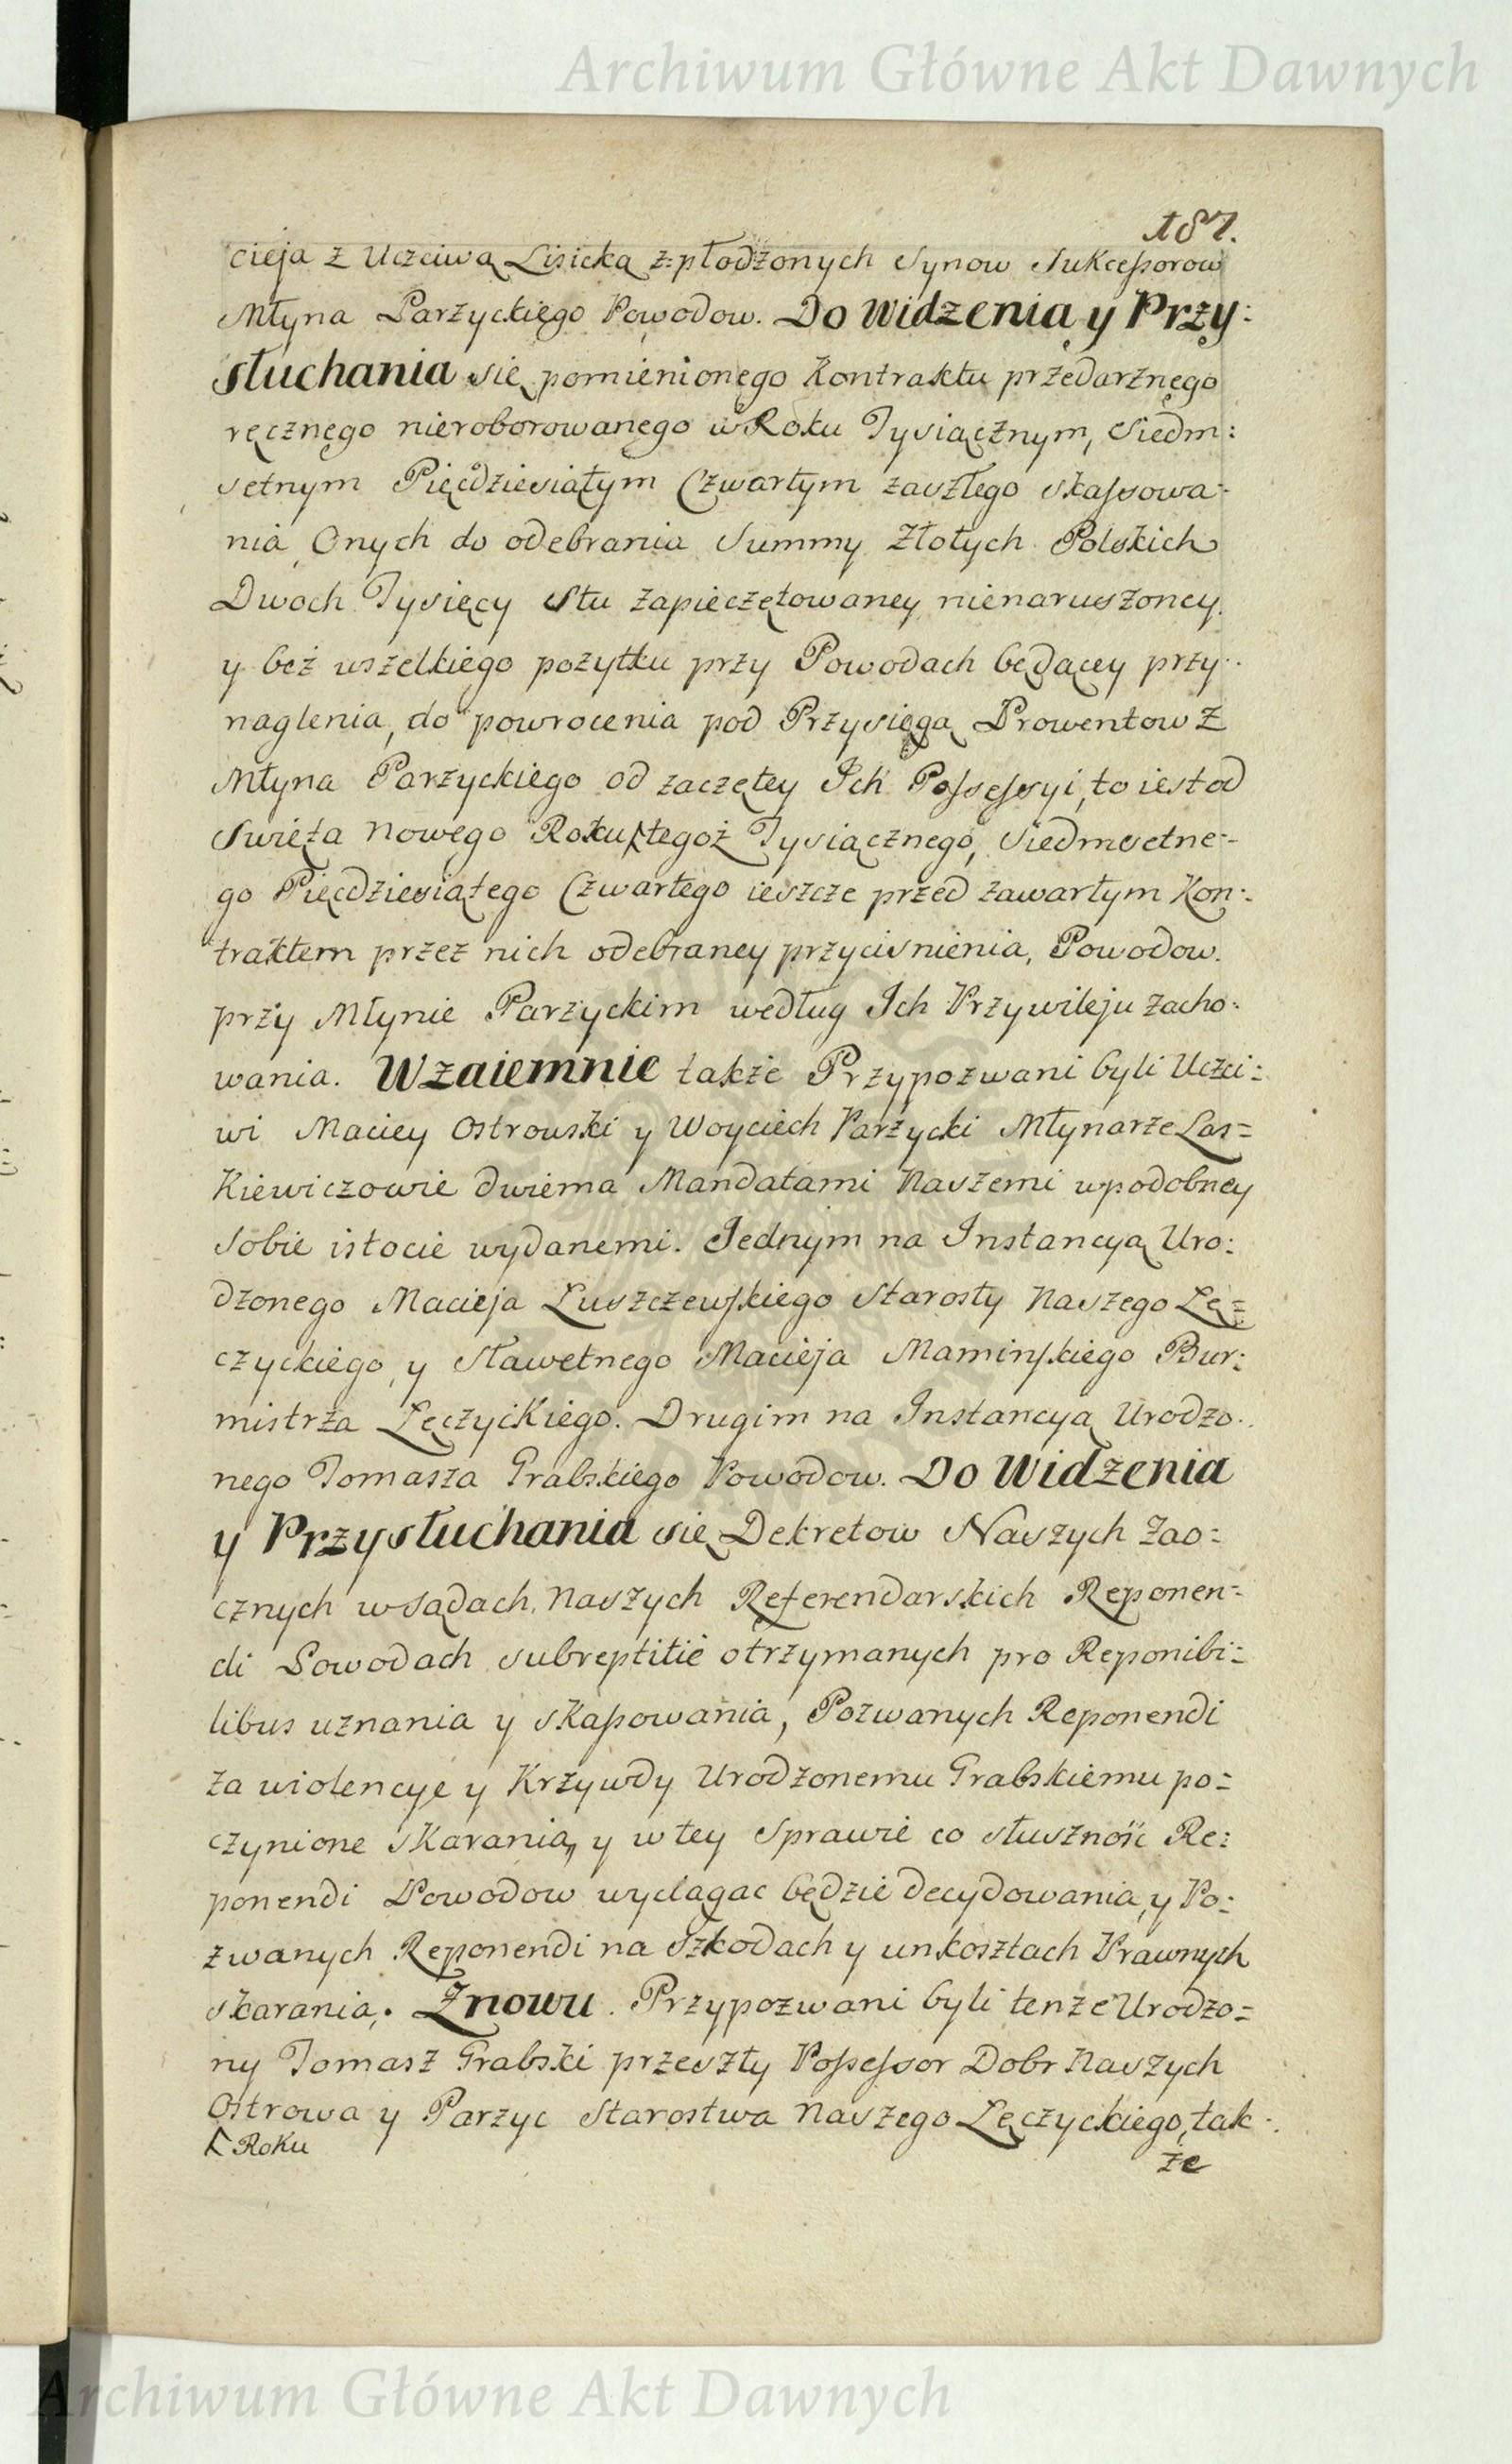 Archiwum Główne Akt Dawnych
187.
cieja z Uczciwą Lisicką z:płodzonych Synow Sukceßorow
Młyna Parzyckiego Powodow. Do Widzenia y Przy:
słuchania się pomienionego Kontraktu przedarznego
ręcznego nieroborowanego w Roku Tysiącznym, Siedm:
setnym Pięćdziesiątym Czwartym zaszłego skassowa:
nia, Onych do odebrania Summy Złotych Polskich
Dwoch Tysięcy Stu zapieczętowaney nienaruszoney,
y bez wszelkiego pozytku przy Powodach będącey przy:
naglenia, do powrocenia pod Przysięgą Prowentow z
Młyna Parzyckiego od zaczętey Ich Possessyi, to iest od
Swięta Nowego Roku tegoż Tysiącznego, Siedmsetne:
go Pięćdziesiątego Czwartego ieszcze przed zawartym Kon:
traktem przez nich odebraney przyciśnienia, Powodow.
przy Młynie Parzyckim według Ich Przywileju zacho:
wania. Wzaiemnie także Przypozwani byli Uczci:
wi Maciey Ostrowski y Woyciech Parzycki Młynarze Las=
Kiewiczowie dwiema Mandatami Naszemi w podobney
sobie istocie wydanemi. Jednym na Instancyą Uro:
dzonego Macieja Luszczewskiego Starosty Naszego Łę=
czyckiego, y Sławetnego Macieja Maminskiego Bur:
mistrza Łęczyckiego. Drugim na Instancyą Urodzo:
nego Tomasza Grabskiego Powodow. Do Widzenia
y Przysłuchania się Dekretow Naszych Zao=
cznych w Sądach Naszych Referendarskich Reponen=
di Powodach subreptitiè otrzymanych pro Reponibi=
libus uznania y skaßowania, Pozwanych Reponendi
za wiolencye y Krzywdy Urodzonemu Grabskiemu po=
czynione skarania, y w tey Sprawie co słuszność Re:
ponendi Powodow wyciagac będzie decydowania, y Po:
zwanych Reponendi na Szkodach y unkosztach Prawnych
skarania. Znowu. Przypozwani byli tenże Urodzo=
ny Tomasz Grabski przeszły Possessor Dobr Naszych
Ostrowa y Parzyc Starostwa Naszego Łęczyckiego, tak:
Roku
że
Archiwum Główne Akt Dawnych